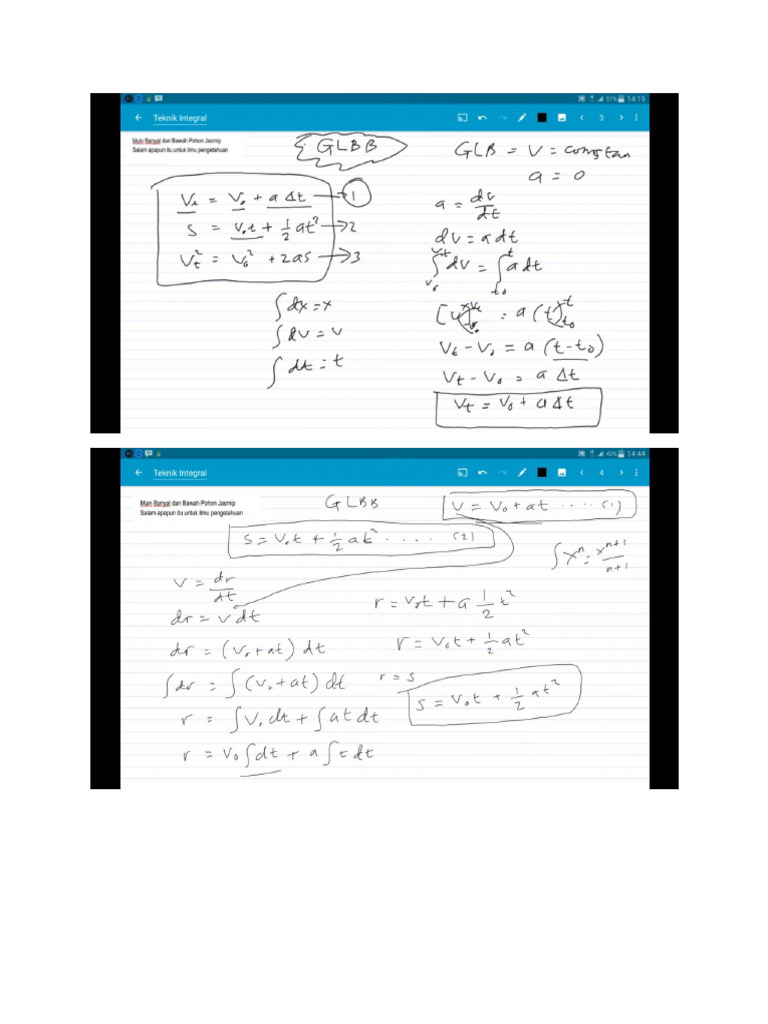 51% 14:19
Teknik Integral
3
Muin Banyal dan Bawah Pohon Jasmip
Salam apapun itu untuk ilmu pengetahuan
GLBB
Vt = V₀ + a Δt → 1
S = V₀t + 1/2 at² → 2
Vt² = V₀² + 2as → 3
∫dx = x
∫dv = v
∫dt = t
GLB = V = constan
a = 0
a = dv/dt
dv = a dt
∫dv = ∫a dt
[v] = a (t)
Vt - V₀ = a (t - t₀)
Vt - V₀ = a Δt
Vt = V₀ + a Δt
42% 14:44
Teknik Integral
4
Muin Banyal dan Bawah Pohon Jasmip
Salam apapun itu untuk ilmu pengetahuan
GLBB
V = V₀ + at .... (1)
S = V₀t + 1/2 at² ..... (2)
∫xⁿ = xⁿ⁺¹/n+1
V = dr/dt
dr = v dt
dr = (V₀ + at) dt
∫dr = ∫(V₀ + at) dt
r = ∫V₀ dt + ∫at dt
r = V₀∫dt + a∫t dt
r = V₀t + a 1/2 t²
r = V₀t + 1/2 at²
r = s
S = V₀t + 1/2 at²